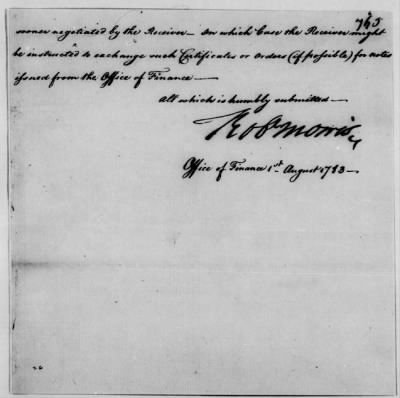 765
sooner negotiated by the Receiver — In which Case the Receiver might
be instructed to exchange such Certificates or Orders (if possible) for notes
issued from the Office of Finance —
All which is humbly submitted —
Rob Morris
Office of Finance 1st August 1783 —